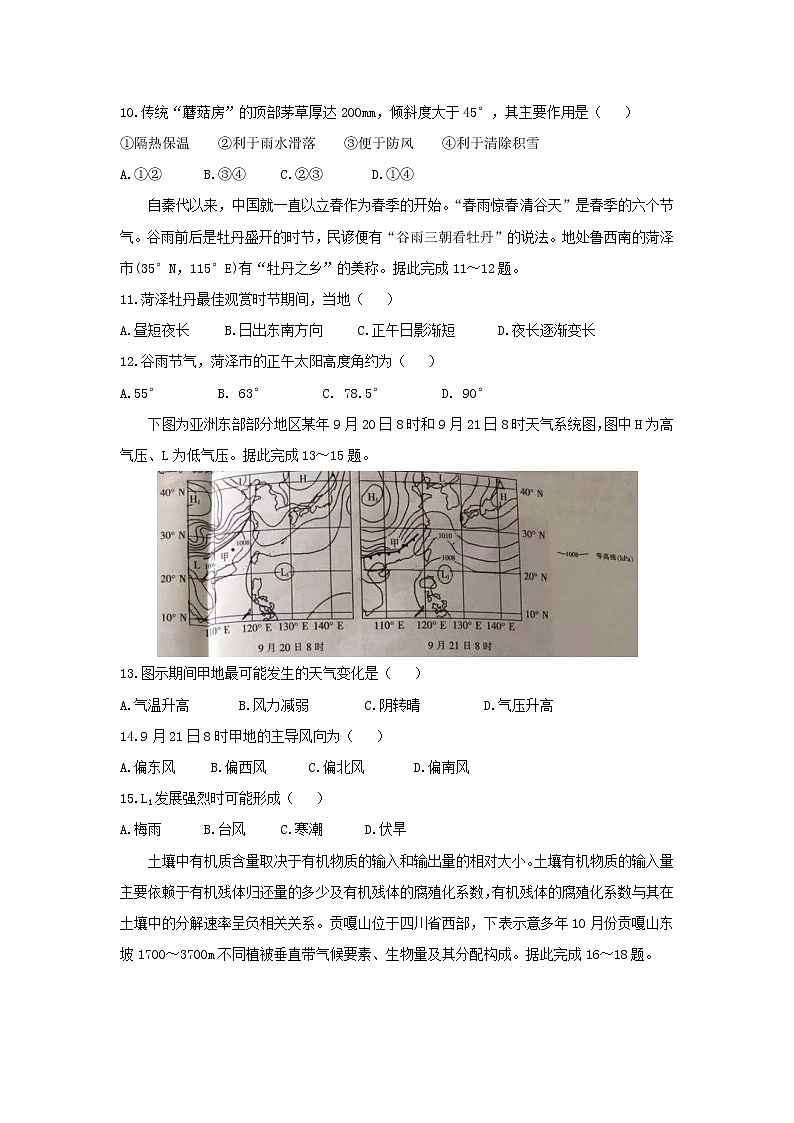 10.传统“蘑菇房”的顶部茅草厚达200mm，倾斜度大于45°，其主要作用是（ ）
①隔热保温 ②利于雨水滑落 ③便于防风 ④利于清除积雪
A.①② B.③④ C.②③ D.①④
自秦代以来，中国就一直以立春作为春季的开始。“春雨惊春清谷天”是春季的六个节
气。谷雨前后是牡丹盛开的时节，民谚便有“谷雨三朝看牡丹”的说法。地处鲁西南的菏泽
市(35°N，115°E)有“牡丹之乡”的美称。据此完成11～12题。
11.菏泽牡丹最佳观赏时节期间，当地（ ）
A.昼短夜长 B.日出东南方向 C.正午日影渐短 D.夜长逐渐变长
12.谷雨节气，菏泽市的正午太阳高度角约为（ ）
A.55° B. 63° C. 78.5° D. 90°
下图为亚洲东部部分地区某年9月20日8时和9月21日8时天气系统图，图中H为高
气压、L为低气压。据此完成13～15题。
40° N H₁ L H H₁ L H 40° N
30° N 1008 甲 甲 1010 30° N
1008 等高线(hPa)
20° N L L₁ 1008 L₁ 20° N
10° N 10° N
110° E 120° E 130° E 140° E 110° E 120° E 130° E 140° E
9月20日8时 9月21日8时
13.图示期间甲地最可能发生的天气变化是（ ）
A.气温升高 B.风力减弱 C.阴转晴 D.气压升高
14.9月21日8时甲地的主导风向为（ ）
A.偏东风 B.偏西风 C.偏北风 D.偏南风
15.L₁发展强烈时可能形成（ ）
A.梅雨 B.台风 C.寒潮 D.伏旱
土壤中有机质含量取决于有机物质的输入和输出量的相对大小。土壤有机物质的输入量
主要依赖于有机残体归还量的多少及有机残体的腐殖化系数，有机残体的腐殖化系数与其在
土壤中的分解速率呈负相关关系。贡嘎山位于四川省西部，下表示意多年10月份贡嘎山东
坡1700～3700m不同植被垂直带气候要素、生物量及其分配构成。据此完成16～18题。